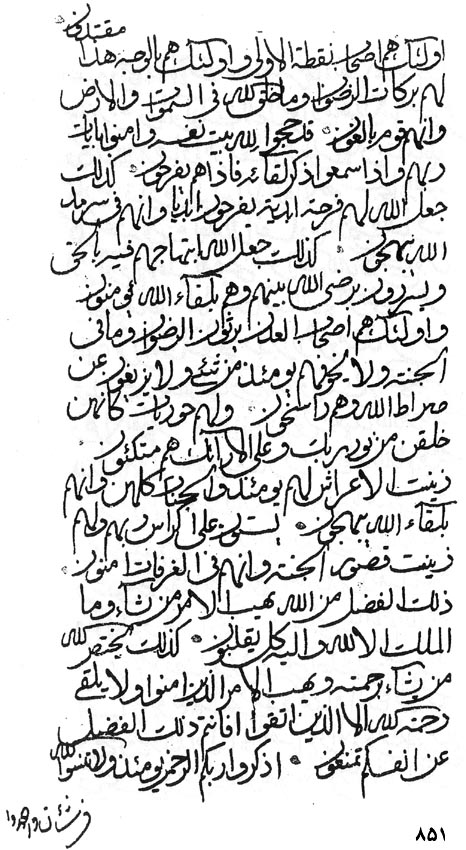 مقتدون
اولئك هم اصحاب نقطة الاولى و اولئك هم بالوجه هذا
لهم بركات الرضوان وما خلق الله فى السموات والارض
وانهم قوم بالغون قد حجوا لله بيت نفسه وامنوا بايات
ربهم واذا سمعوا ذكر لقائه فاذا هم يفرحون كذلك
جعل الله لهم فرحة ابدية يفرحون ابديا وانهم فى سرمد
الله يبهجون كذلك جعل الله ابتهاجهم فيه بالحق
و يسرون برضى الله بينهم وهم بلقاء الله يومنون
و اولئك هم اصحاب العدل يرثون الرضوان وما فى
الجنة ولا يخوفهم يومئذ من شئ ولا يزيغون عن
صراط الله وهم راسخون ولهم حوريات كانهن
خلقن من نور ربك وعلى الارائك هم متكئون
زينت الاعراش لهم يومئذ والجنات كلهن وانهم
بلقاء الله يبهجون يستون على كراس ربهم ولهم
زينت قصور الجنة وانهم فى الغرفات امنون
ذلك الفضل من الله يهب الامر من يشاء وما
الملك الا لله واليه كل يقلبون كذلك يختص الله
من يشاء برحمته ويهب الامر الذين امنوا ولا يلقى
رحمة الله الا الذين اتقوا افانتم ذلك الفضل
عن انفسكم تمنعون اذكروا ربكم الرحمن يومئذ ولا تنسوا الله
٨٥١